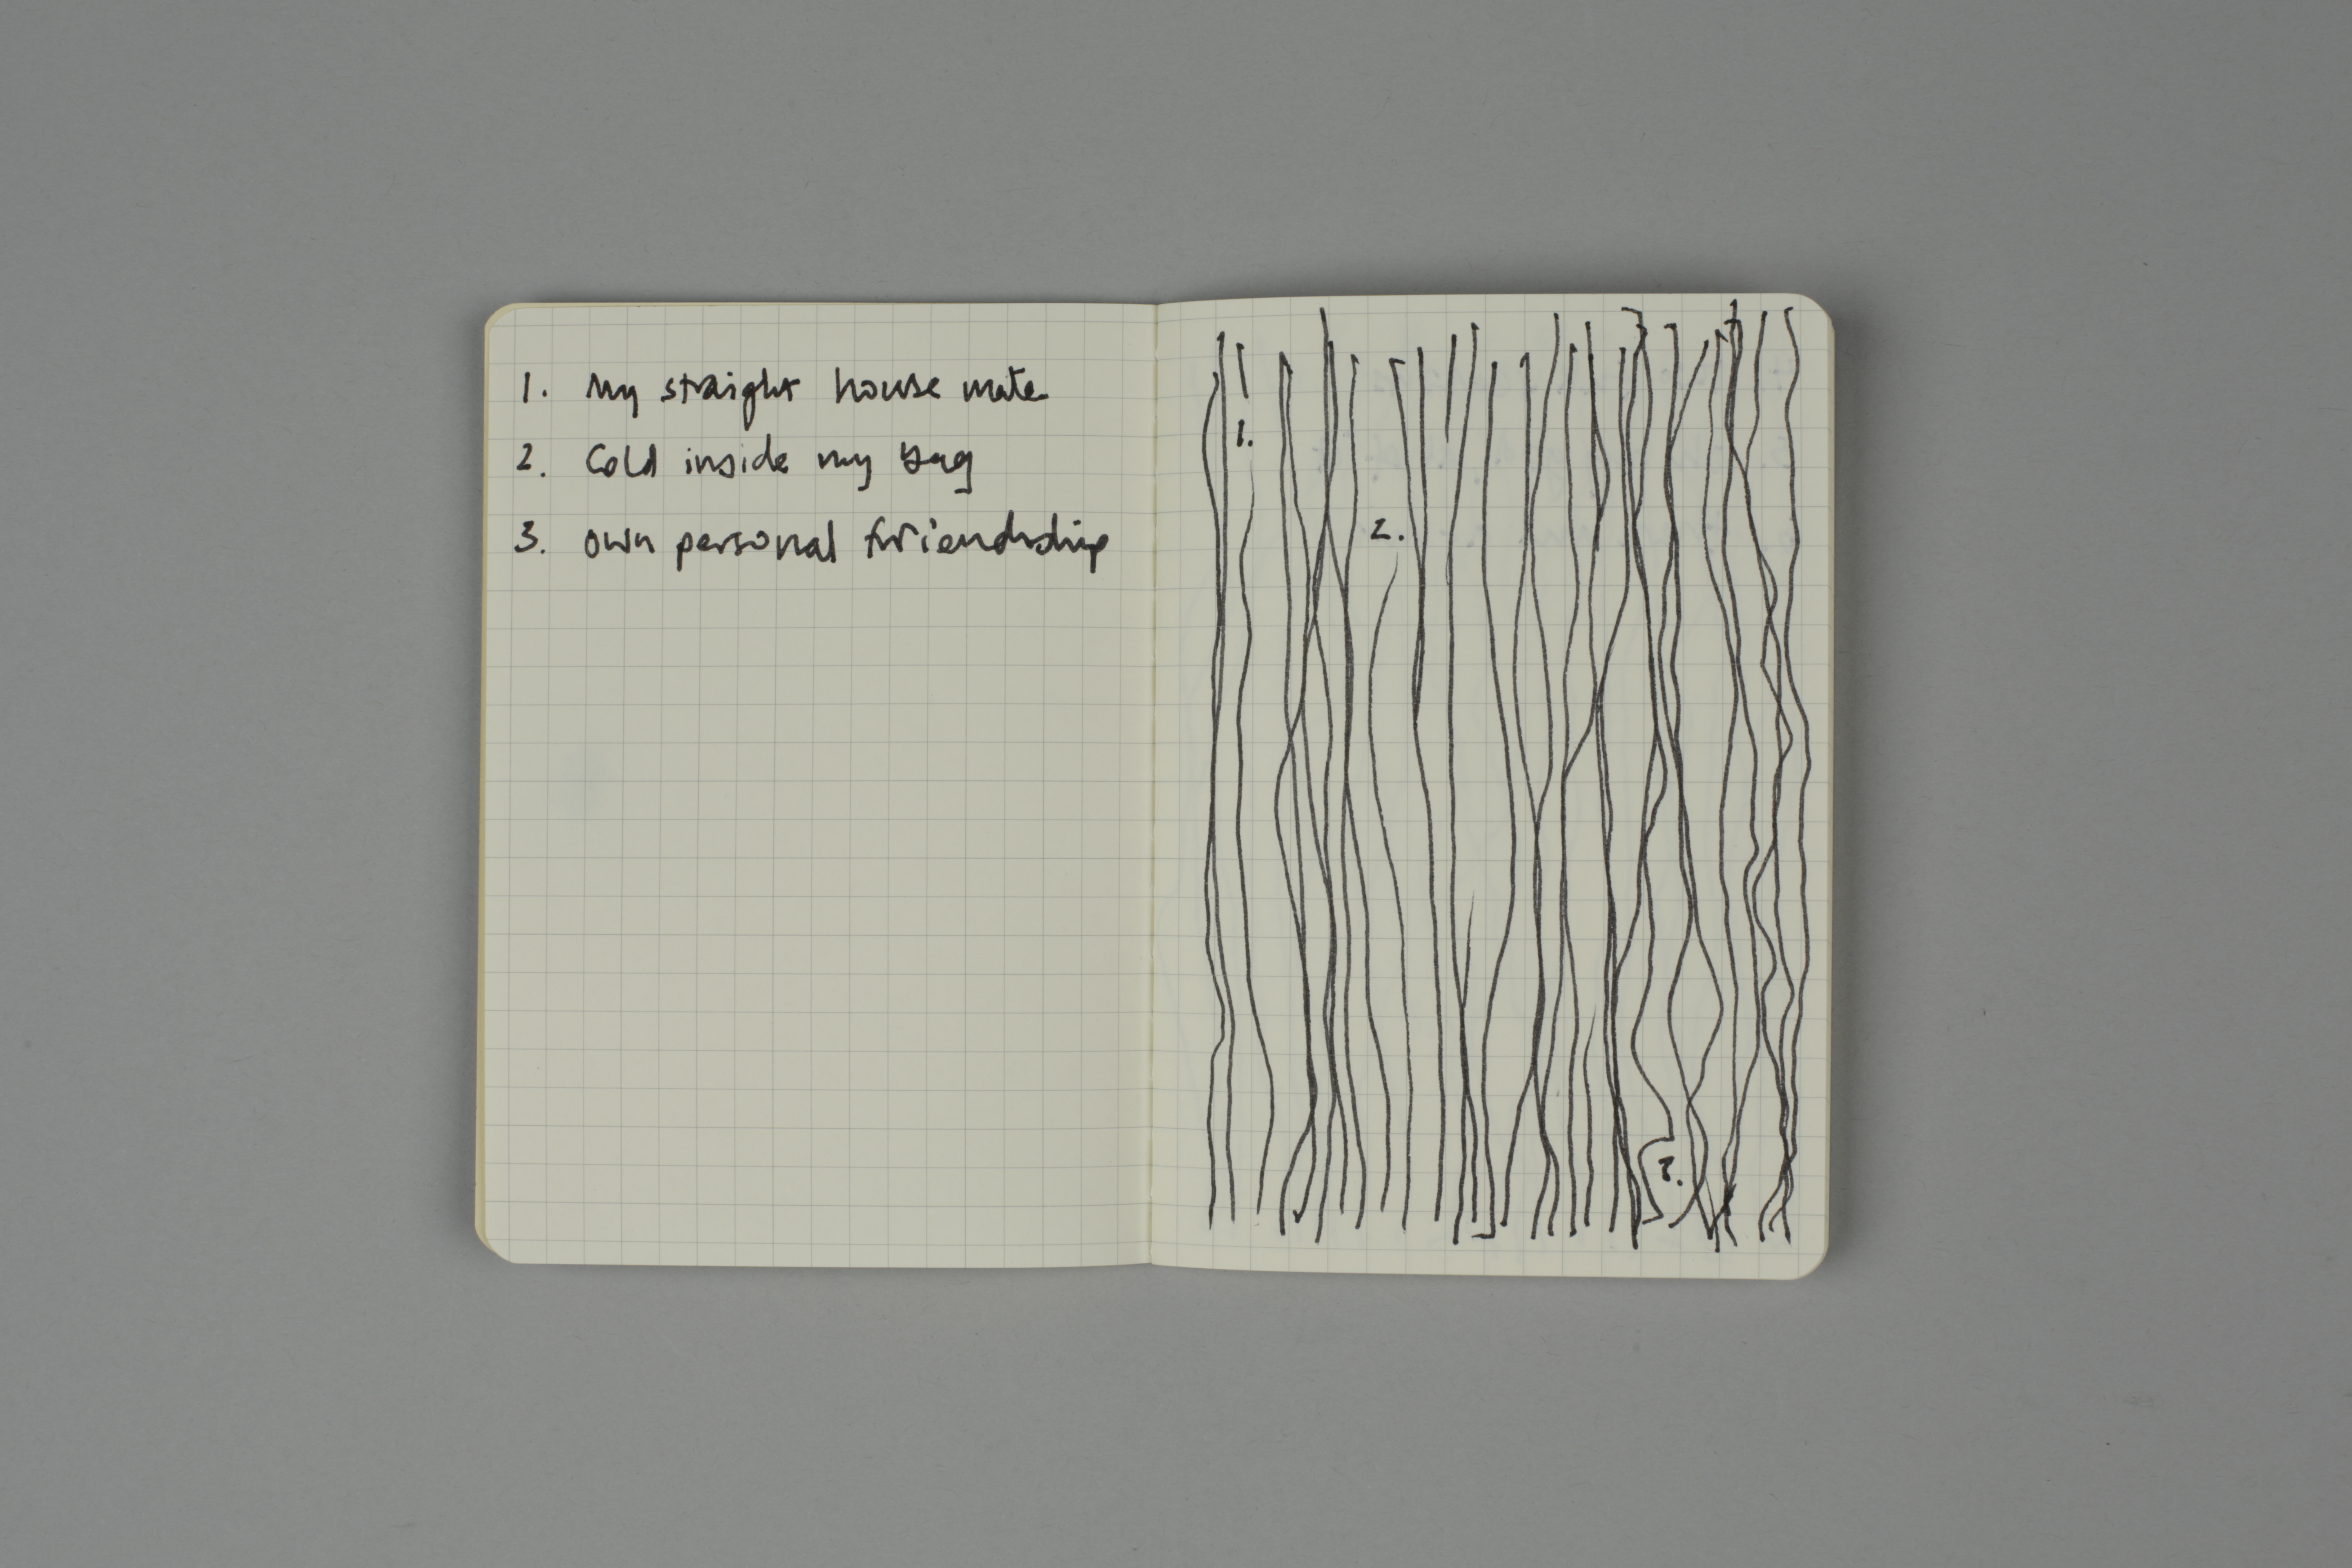 1. My straight house mate
2. Cold inside my bag
3. own personal friendship
1.
2.
3.